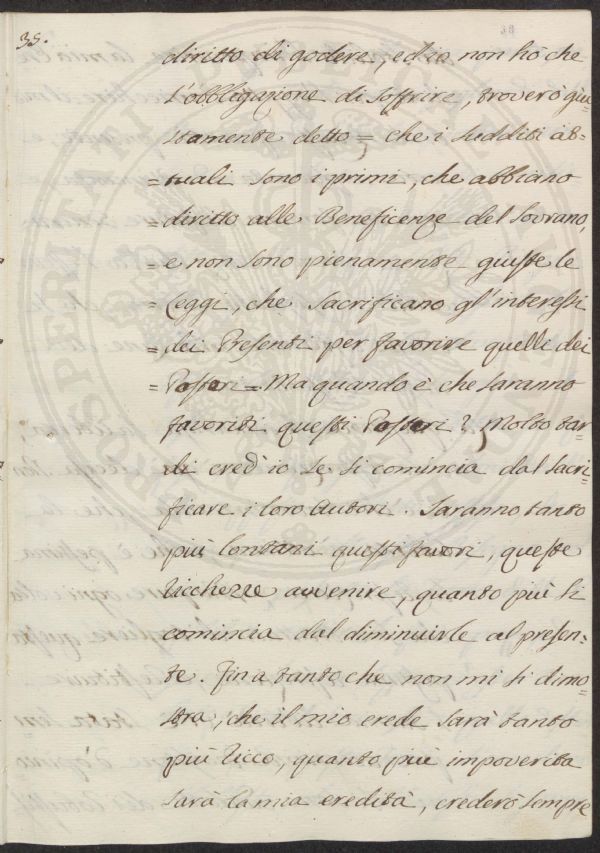 35.
diritto di godere, ed io non hò che
l'obbligazione di soffrire, troverò giu-
stamente detto = che i sudditi at-
=tuali sono i primi, che abbiano
=diritto alle Beneficenze del Sovrano,
=e non sono pienamente giuste le
=Leggi, che sacrificano gl'interessi
=dei Presenti per favorire quelli dei
=Posteri = Ma quando è che saranno
favoriti questi Posteri? Molto tar-
di cred'io se si comincia dal sacri-
ficare i loro Autori. Saranno tanto
più lontani questi favori, queste
ricchezze avvenire, quanto più si
comincia dal diminuirle al presen-
te. Fin a tanto che non mi si dimo-
stra, che il mio erede sarà tanto
più ricco, quanto più impoverita
sarà la mia eredità, crederò sempre